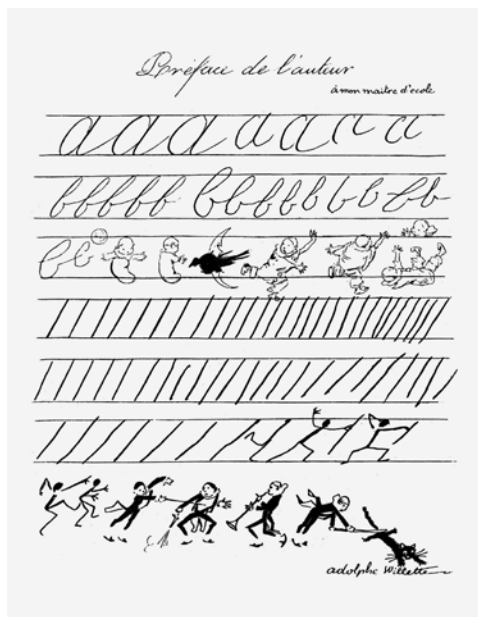 Préface de l'auteur
à mon maitre d'école
a a a a a a a
b b b b b b b b b b b b b b
b b
adolphe Willette